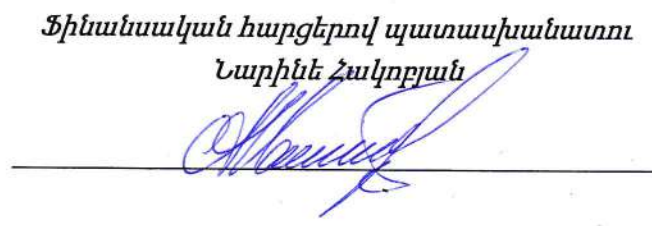 Ֆինանսական հարցերով պատասխանատու
Նարինե Հակոբյան